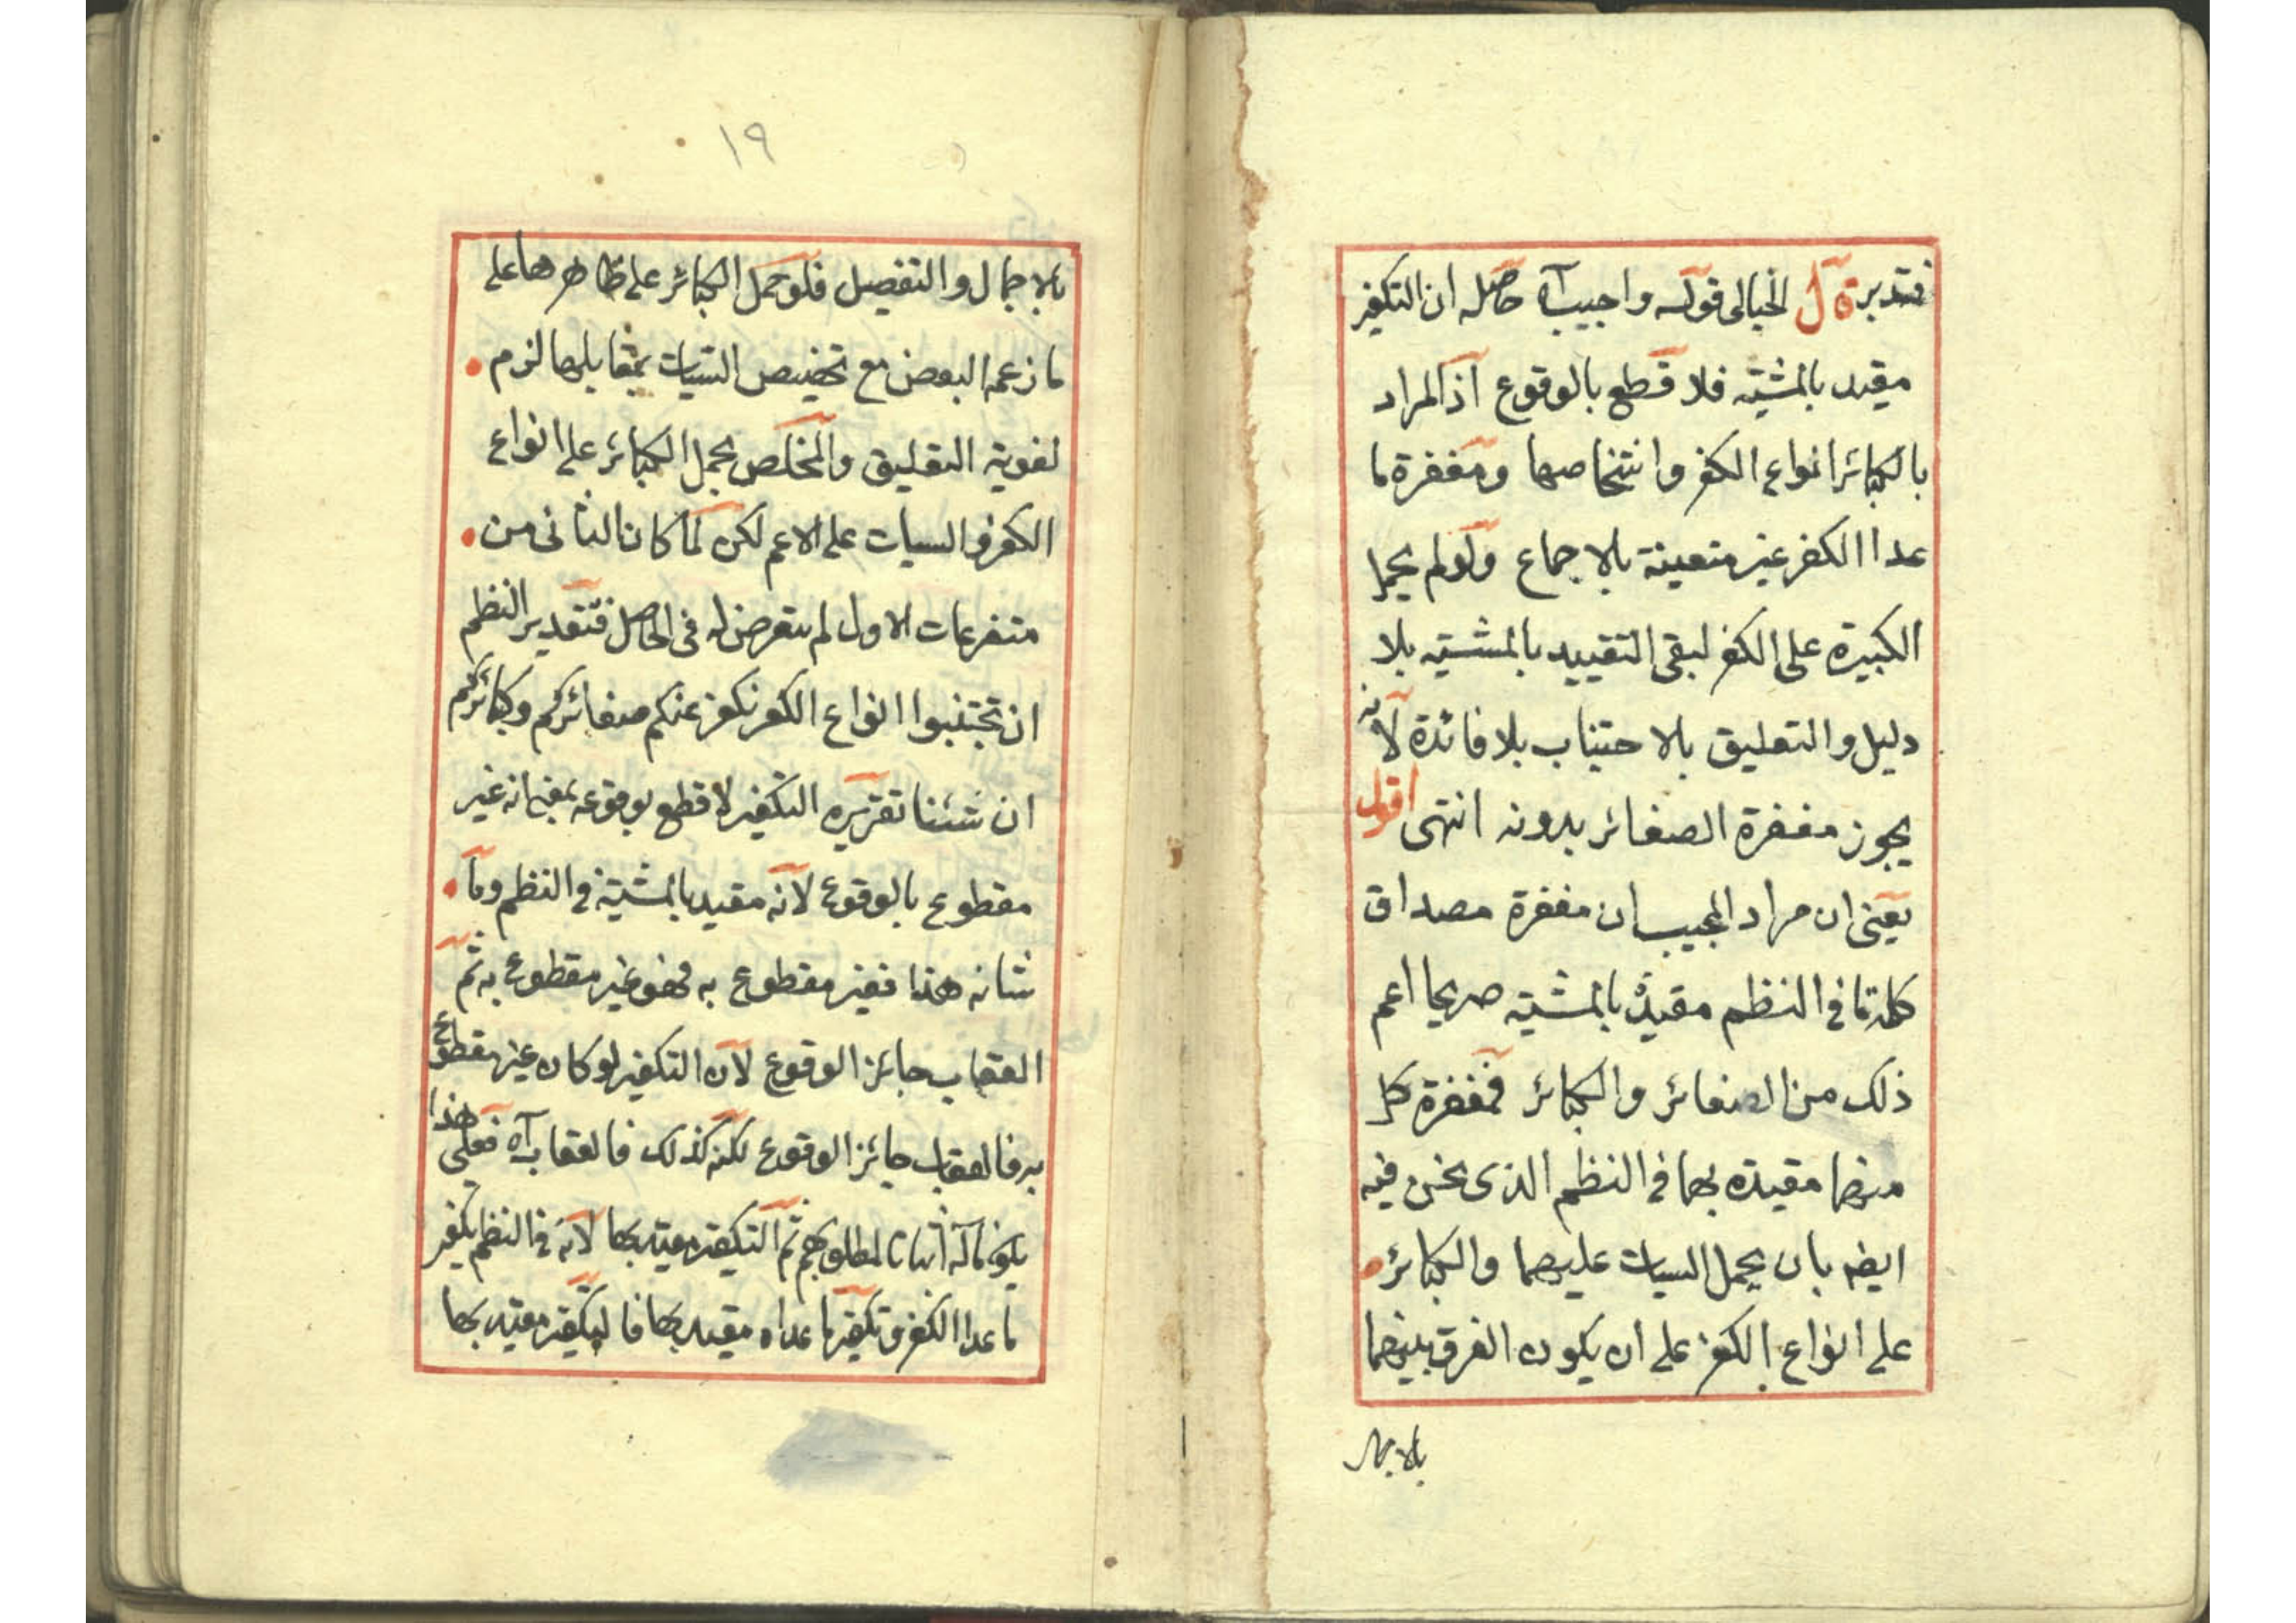 فتدبر قال الخيالى قوله واجيب آه حاصله ان التكفير
مقيد بالمشيّه فلا قطع بالوقوع اذ المراد
بالكبائر انواع الكفر واشخاصها ومغفرة ما
عدا الكفر غير متعينة بالاجماع ولو لم يحمل
الكبيرة على الكفر لبقى التقييد بالمشيّه بلا
دليل والتعليق بالاجتناب بلا فائدة لانه
يجوز مغفرة الصغائر بدونه انتهى اقول
يعنى ان مراد المجيب ان مغفرة مصداق
كلمة ما فى النظم مقيدة بالمشيّه صريحا اعم
ذلك من الصغائر والكبائر فمغفرة كل
منهما مقيده بها فى النظم الذى نحن فيه
ايضه بان يحمل السيات عليهما والكبائر
على انواع الكفر على ان يكون الفرق بينهما
بالاجمال
١٩
بالاجمال والتفصيل فلو حمل الكبائر على ظاهرها على
ما زعمه البعض مع تخصيص السّيات بمقابلها لزم
لغوية التعليق والمخلص بحمل الكبائر على انواع
الكفر والسيات على الاعم لكن لما كان الثانى من
متفرعات الاول لم يتعرض له فى الحاصل فتقدير النظم
ان تجتنبوا انواع الكفر نكفر عنكم صغائركم وكبائركم
ان شئنا تقريره التكفير لا قطع بوقوعه بمعنى انه غير
مقطوع بالوقوع لانه مقيد بالمشيّة فى النظم وما
شانه هذا فغير مقطوع به فهو غير مقطوع به ثم
العقاب جائز الوقوع لان التكفير لو كان غير مقطوع
به فالعقاب جائز الوقوع لكنه كذلك فالعقاب آه فعلى هذا
يكون ماله اثباتا لمطلوبهم ثم التكفير مقيد بها لانه فى النظم تكفير
ما عدا الكفر وتكفير ما عداه مقيد بها فالتكفير مقيد بها